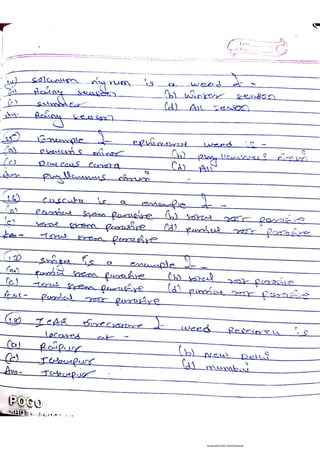 14) Solanum nigrum is a weed of -
(a) Rainy season (b) winter season
(c) summer (d) All season
Ans- Rainy season
15) Example of ephimeral weed is -
(a) minor (b) phyllanthus niruri
(c) Daucus carota (d) All
Ans- phyllanthus niruri
16) Cascuta is a example of -
(a) parrial stem parasite (b) total root parasite
(c) total stem parasite (d) parrial root parasite
Ans- Total stem parasite
17) striga is a example of -
(a) parrial stem parasite (b) total root parasite
(c) Total stem parasite (d) parrial root parasite
Ans- parrial root parasite
18) ICAR Directorate of weed Research is
located at -
(a) Raipur (b) New Delhi
(c) Jabalpur (d) mumbai
Ans- Jabalpur
POCO
Scanned with CamScanner